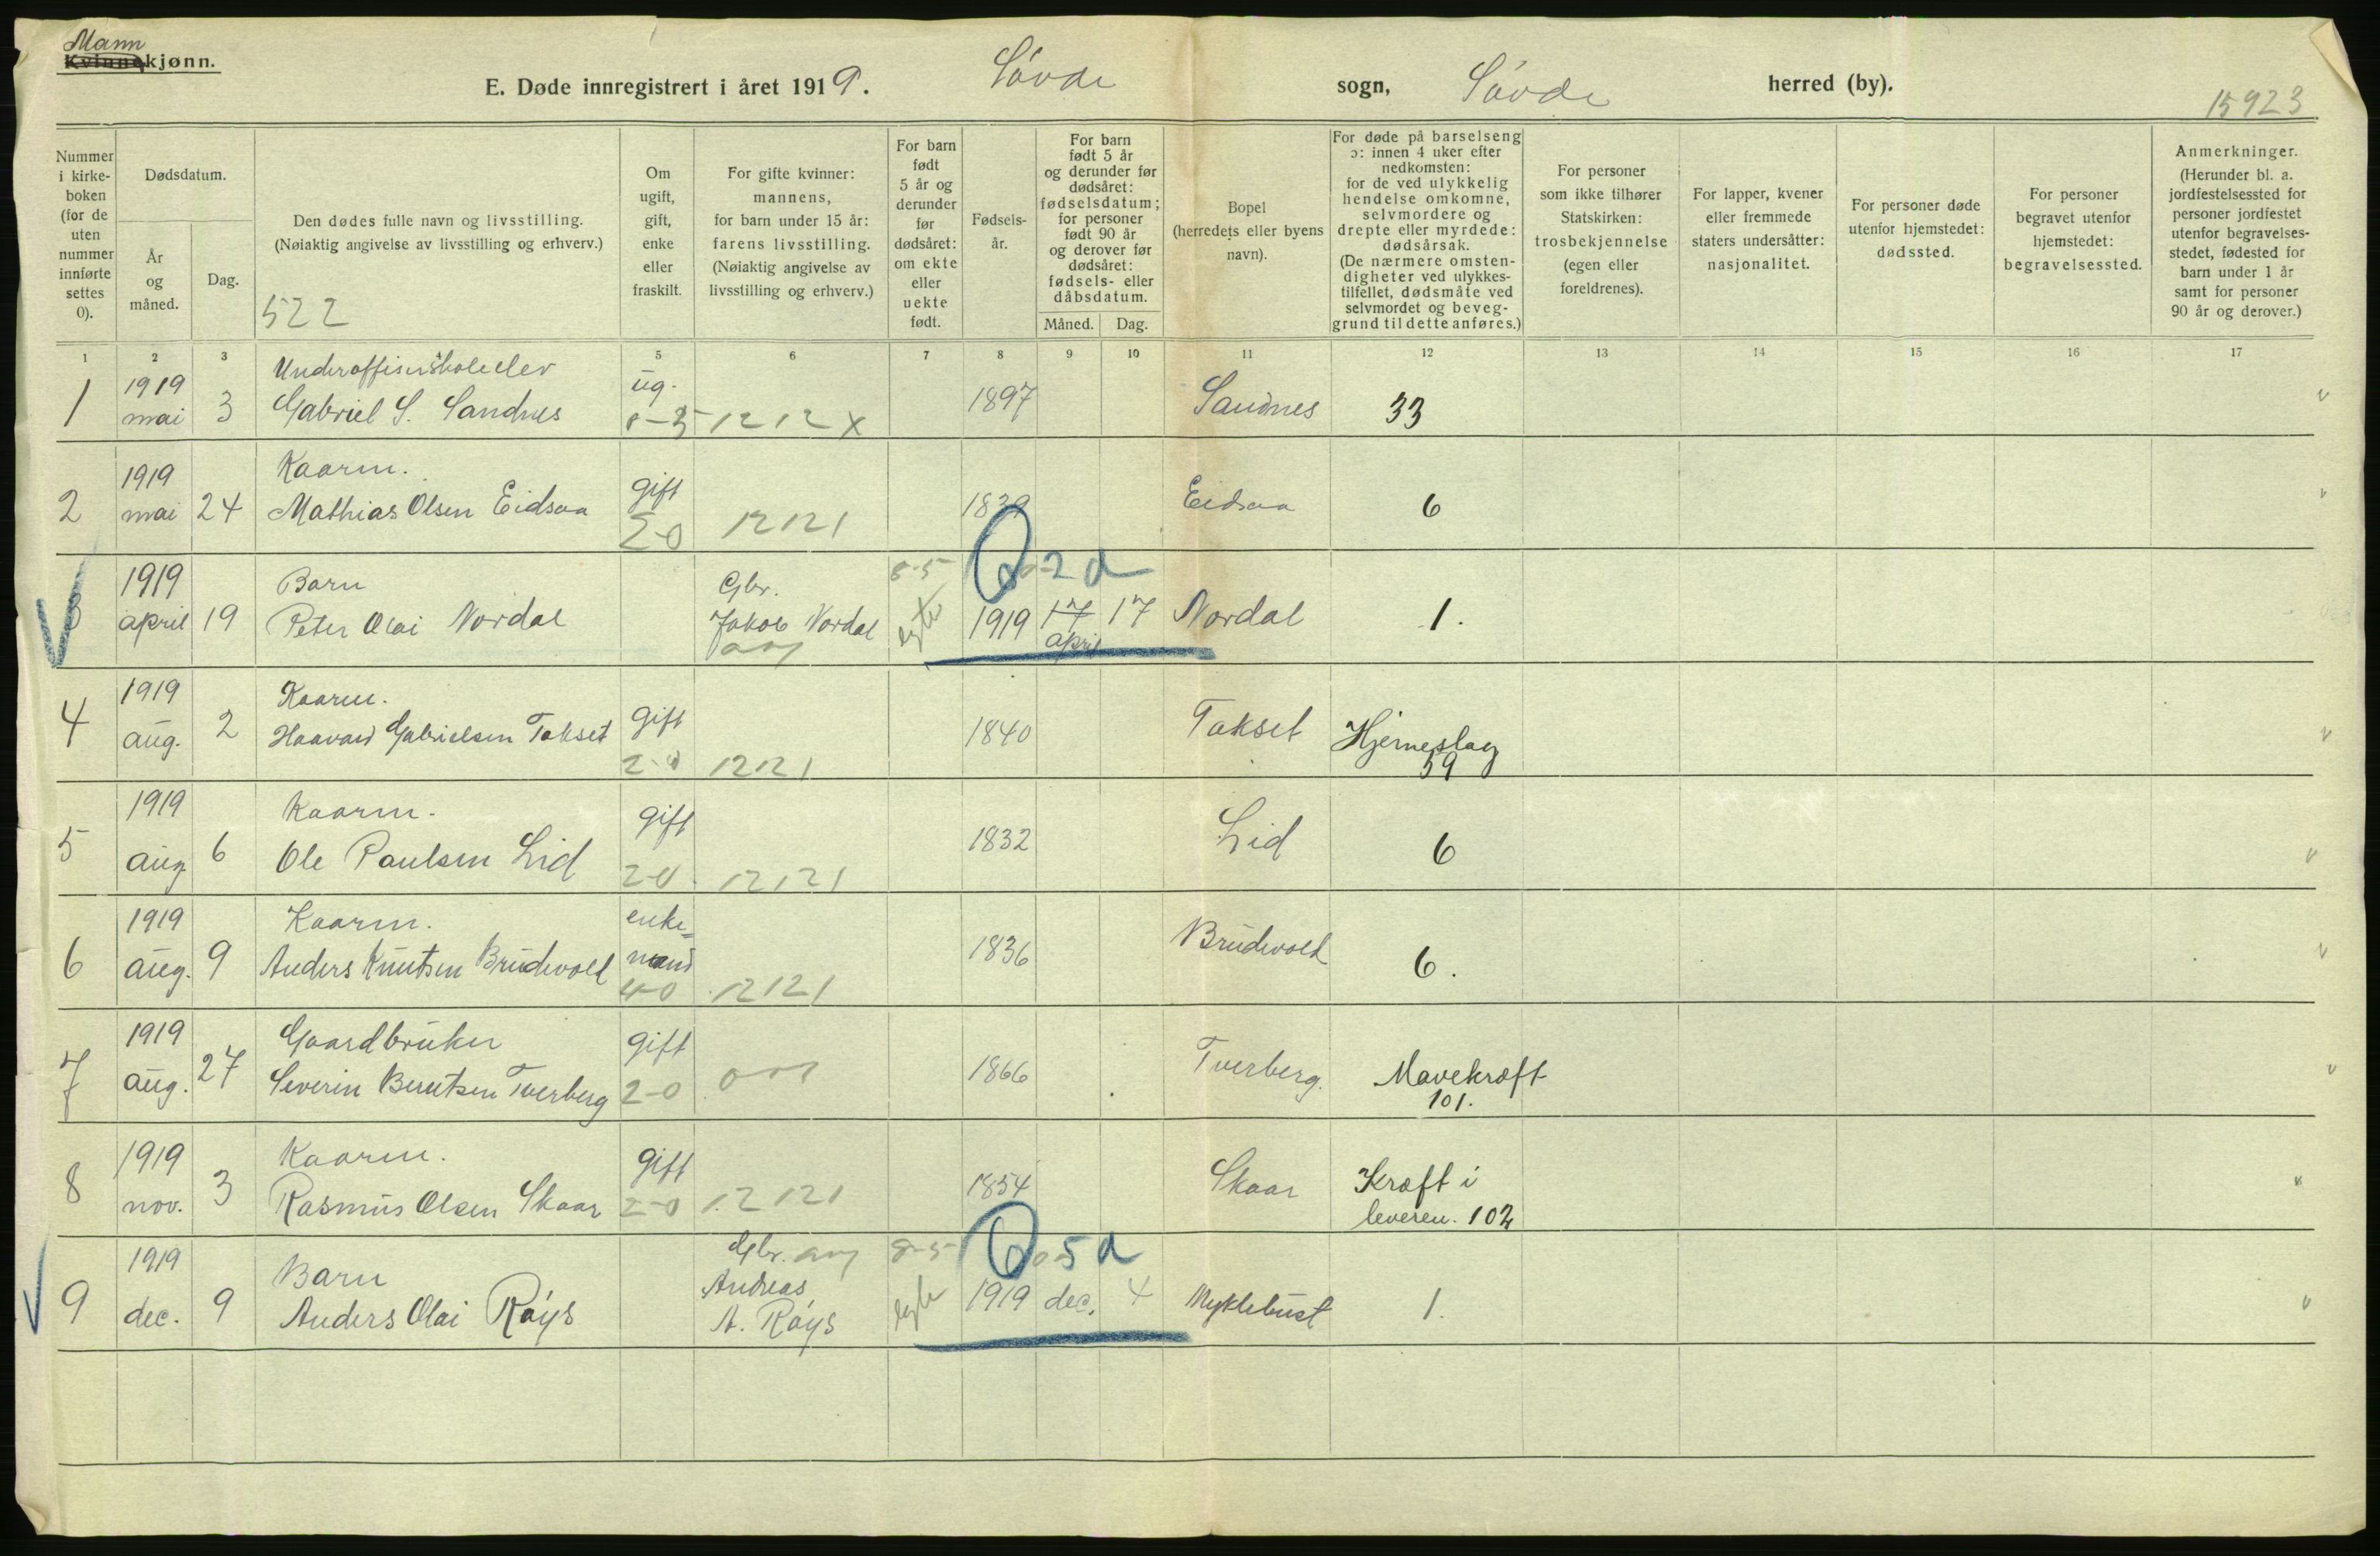 Mann
Kvinnekjønn.
E. Døde innregistrert i året 1919. Søvde sogn, Søvde herred (by).
15923
Nummer i kirke-boken (for de uten nummer innførte settes 0).
Dødsdatum.
År og måned.
Dag.
Den dødes fulle navn og livsstilling.
(Nøiaktig angivelse av livsstilling og erhverv.)
522
Om ugift, gift, enke eller fraskilt.
For gifte kvinner: mannens, for barn under 15 år: farens livsstilling. (Nøiaktig angivelse av livsstilling og erhverv.)
For barn født 5 år og derunder før dødsåret: om ekte eller uekte født.
Fødsels-år.
For barn født 5 år og derunder før dødsåret: fødselsdatum; for personer født 90 år og derover før dødsåret: fødsels- eller dåbsdatum.
Måned. Dag.
Bopel (herredets eller byens navn).
For døde på barselseng ɔ: innen 4 uker efter nedkomsten: for de ved ulykkelig hendelse omkomne, selvmordere og drepte eller myrdede: dødsårsak. (De nærmere omsten-digheter ved ulykkes-tilfellet, dødsmåte ved selvmordet og beveg-grund til dette anføres.)
For personer som ikke tilhører Statskirken: trosbekjennelse (egen eller foreldrenes).
For lapper, kvener eller fremmede staters undersåtter: nasjonalitet.
For personer døde utenfor hjemstedet: dødssted.
For personer begravet utenfor hjemstedet: begravelsessted.
Anmerkninger. (Herunder bl. a. jordfestelsessted for personer jordfestet utenfor begravelses-stedet, fødested for barn under 1 år samt for personer 90 år og derover.)
1 2 3 5 6 7 8 9 10 11 12 13 14 15 16 17
1 1919 mai 3 Underoffisersskoleelev Gabriel S. Sandnes ug. 1212 x 1897 Sandnes 33
2 1919 mai 24 Kaarm. Mathias Olsen Eidsaa gift 2-0 12121 1839 Eidsaa 6
3 1919 april 19 Barn Peter Olai Nordal Gbr. Jakob Nordal 8-5 egte 0-2 d 1919 17 april 17 Nordal 1.
4 1919 aug. 2 Kaarm. Haavard Gabrielsen Takset gift 2-0 12121 1840 Takset Hjerneslag 59
5 1919 aug. 6 Kaarm. Ole Paulsen Lid gift 2-0 12121 1832 Lid 6
6 1919 aug. 9 Kaarm. Anders Knutsen Brudevold enke=mand 4-0 12121 1836 Brudevold 6.
7 1919 aug. 27 Gaardbruker Severin Berntsen Tverberg gift 2-0 1866 Tverberg. Mavekræft 101.
8 1919 nov. 3 Kaarm. Rasmus Olsen Skaar gift 2-0 12121 1854 Skaar Kræft i leveren. 102
9 1919 dec. 9 Barn Anders Olai Røys Gbr. Andreas A. Røys 8-5 egte 0-5 d 1919 dec. 4 Myklebust 1.